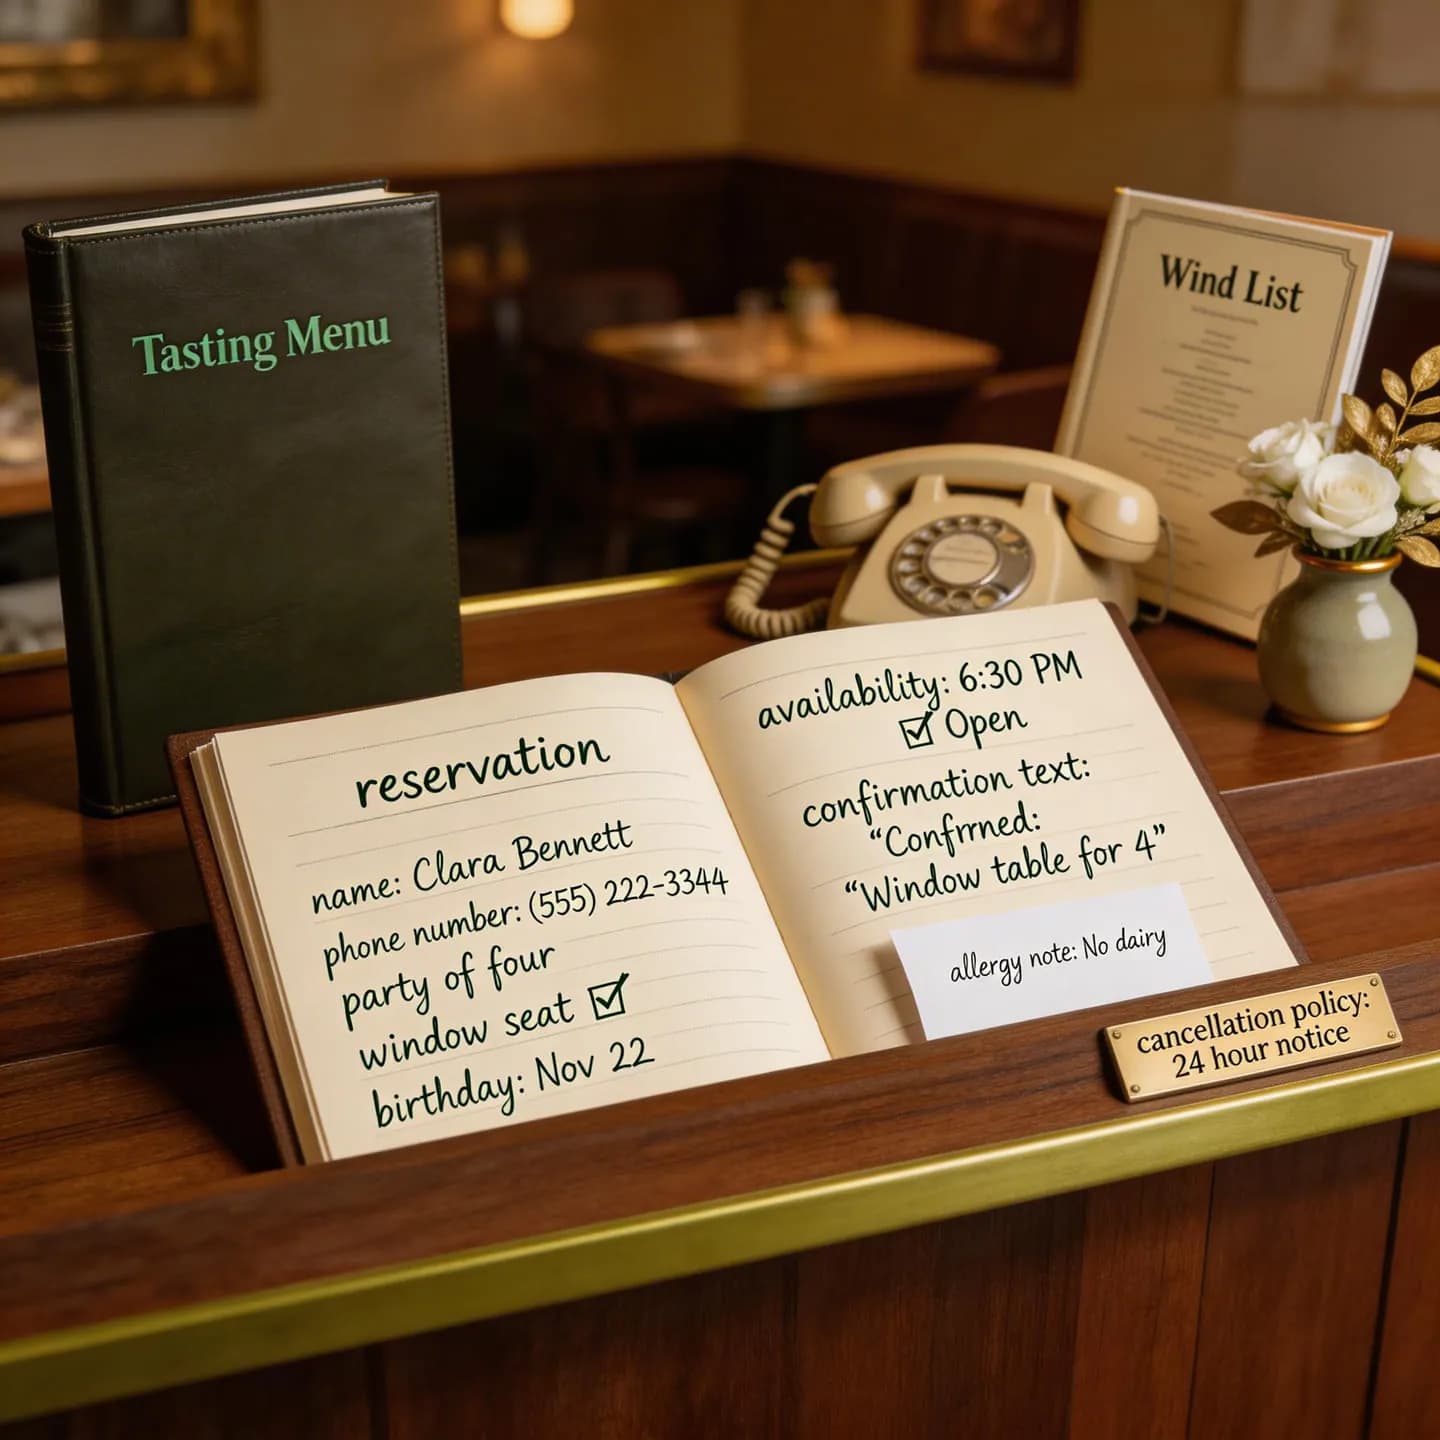 Tasting Menu
Wind List
reservation
name: Clara Bennett
phone number: (555) 222-3344
party of four
window seat ☑
birthday: Nov 22
availability: 6:30 PM
☑ Open
confirmation text:
“Confrrned:
“Window table for 4”
allergy note: No dairy
cancellation policy:
24 hour notice